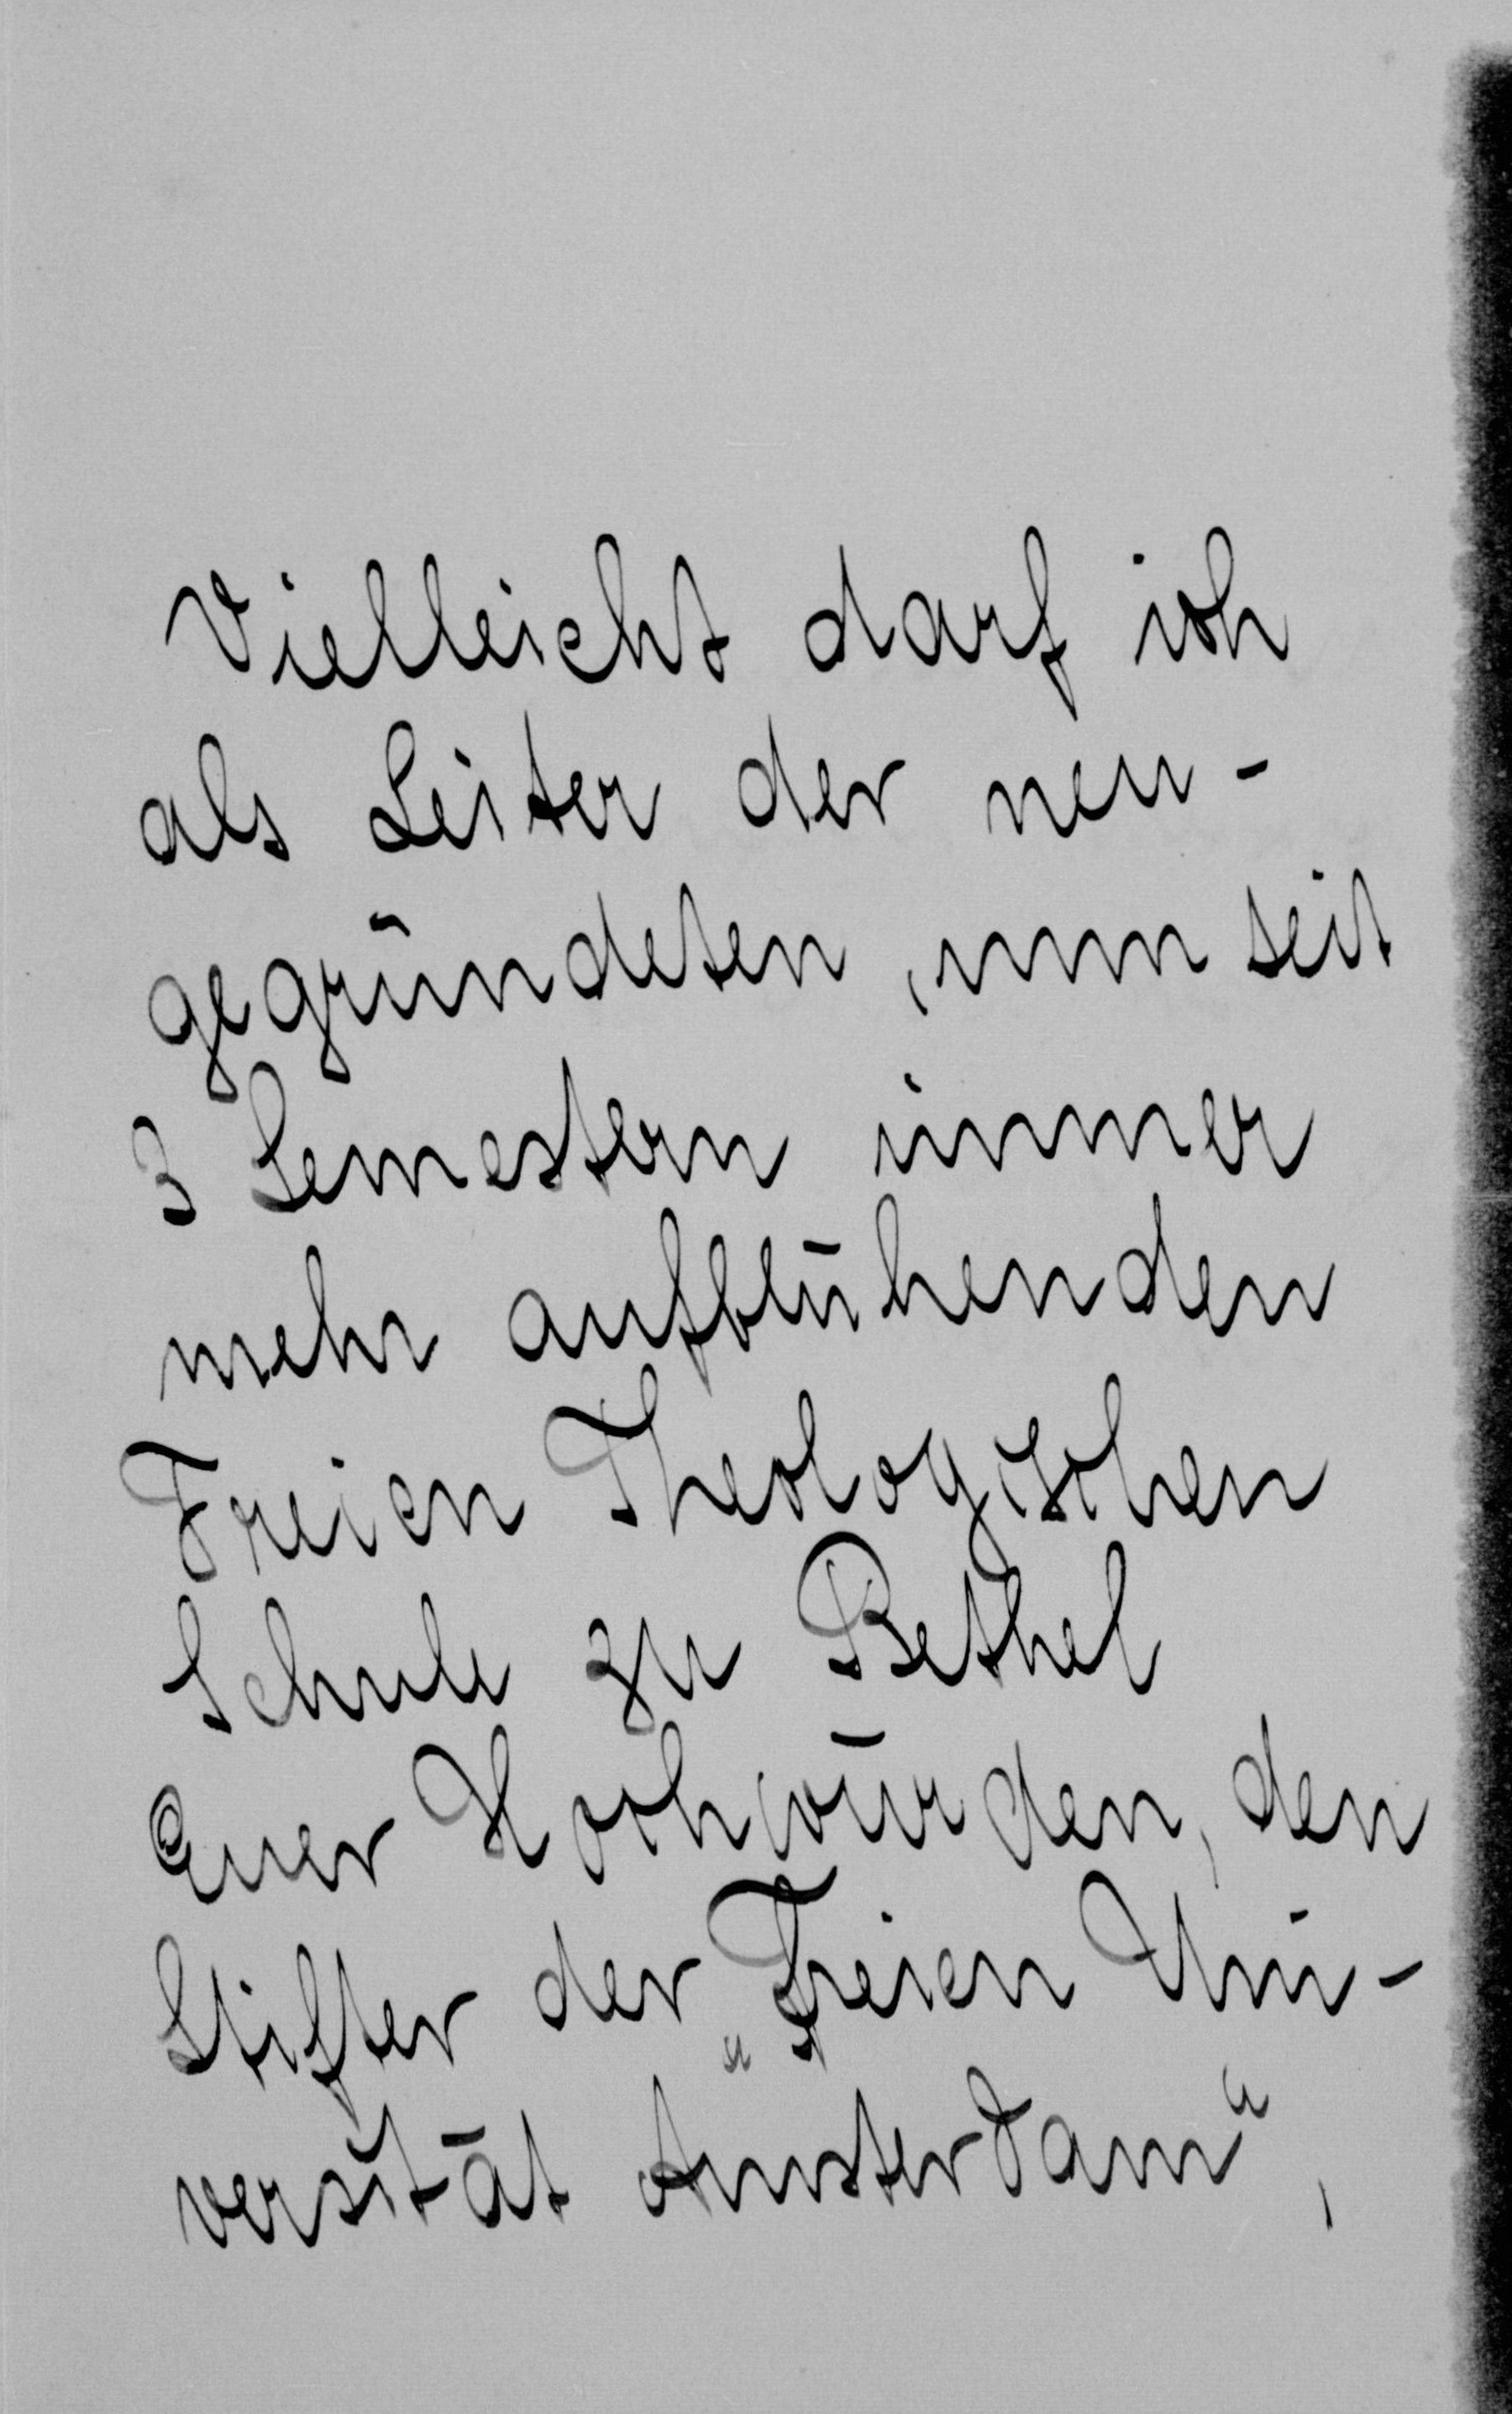 Vielleicht darf ich
als Leiter der neu-
gegründeten, nun seit
3 Semestern immer
mehr aufblühenden
Freien Theologischen
Schule zu Bethel
Euer Hochwürden, den
Stifter der „Freien Uni-
versität Amsterdam“,